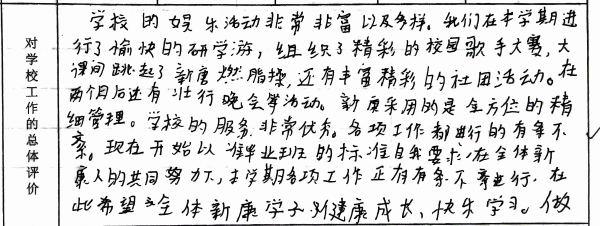 对学校工作的总体评价
学校的娱乐活动非常非富以及多样。我们在本学期进
行了愉快的研学游，组织了精彩的校园歌手大赛，大
课间跳起了新康燃脂操，还有丰富精彩的社团活动。在
两个月后还有壮行晚会等活动。新康采用的是全方位的精
细管理。学校的服务非常优秀。各项工作都进行的有条不
紊。现在开始以准毕业班的标准自我要求，在全体新
康人的共同努力下，本学期各项工作正有有条不紊进行，在
此希望全体新康学子们健康成长，快乐学习。做